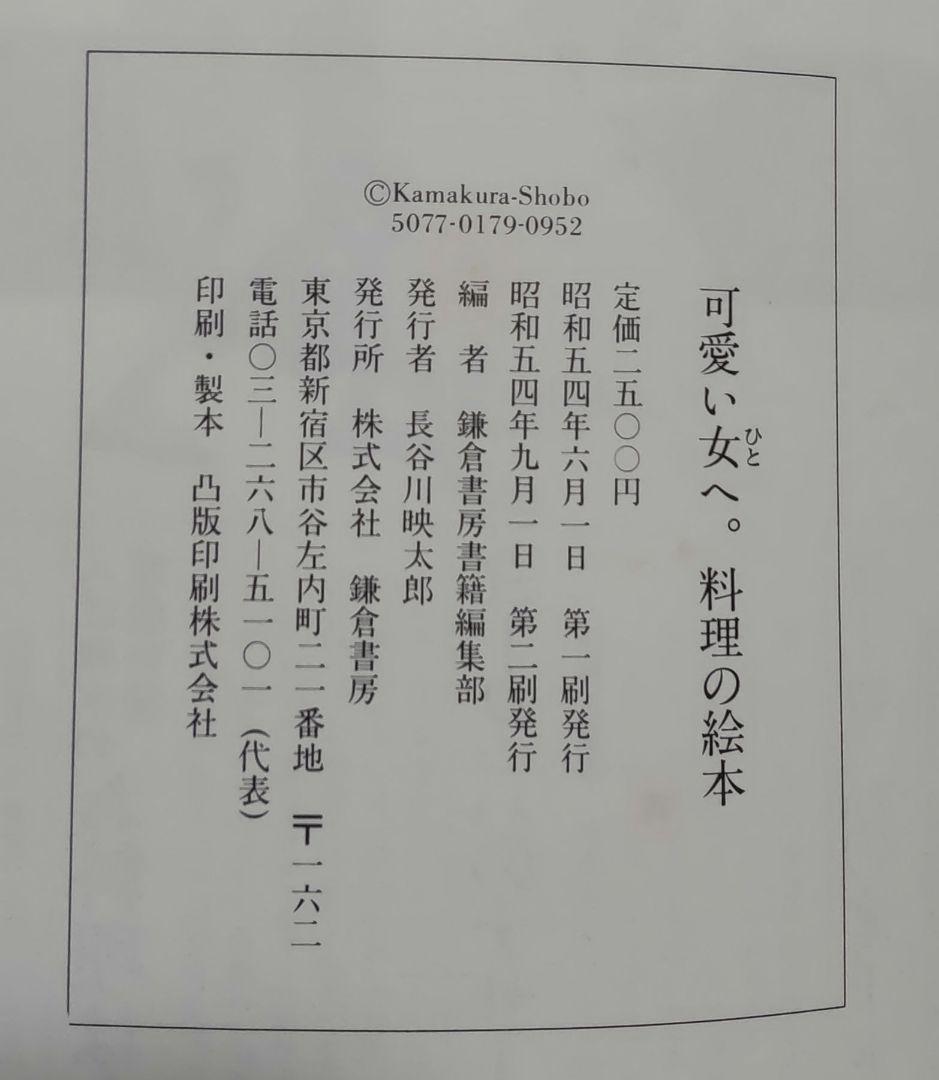 ©Kamakura-Shobo
5077-0179-0952
可愛い女へ。料理の絵本
ひと
定価二五〇〇円
昭和五四年六月一日 第一刷発行
昭和五四年九月一日 第二刷発行
編 者 鎌倉書房書籍編集部
発行者 長谷川映太郎
発行所 株式会社 鎌倉書房
東京都新宿区市谷左内町二一番地 〒一六二
電話〇三―二六八―五一〇一(代表)
印刷・製本 凸版印刷株式会社